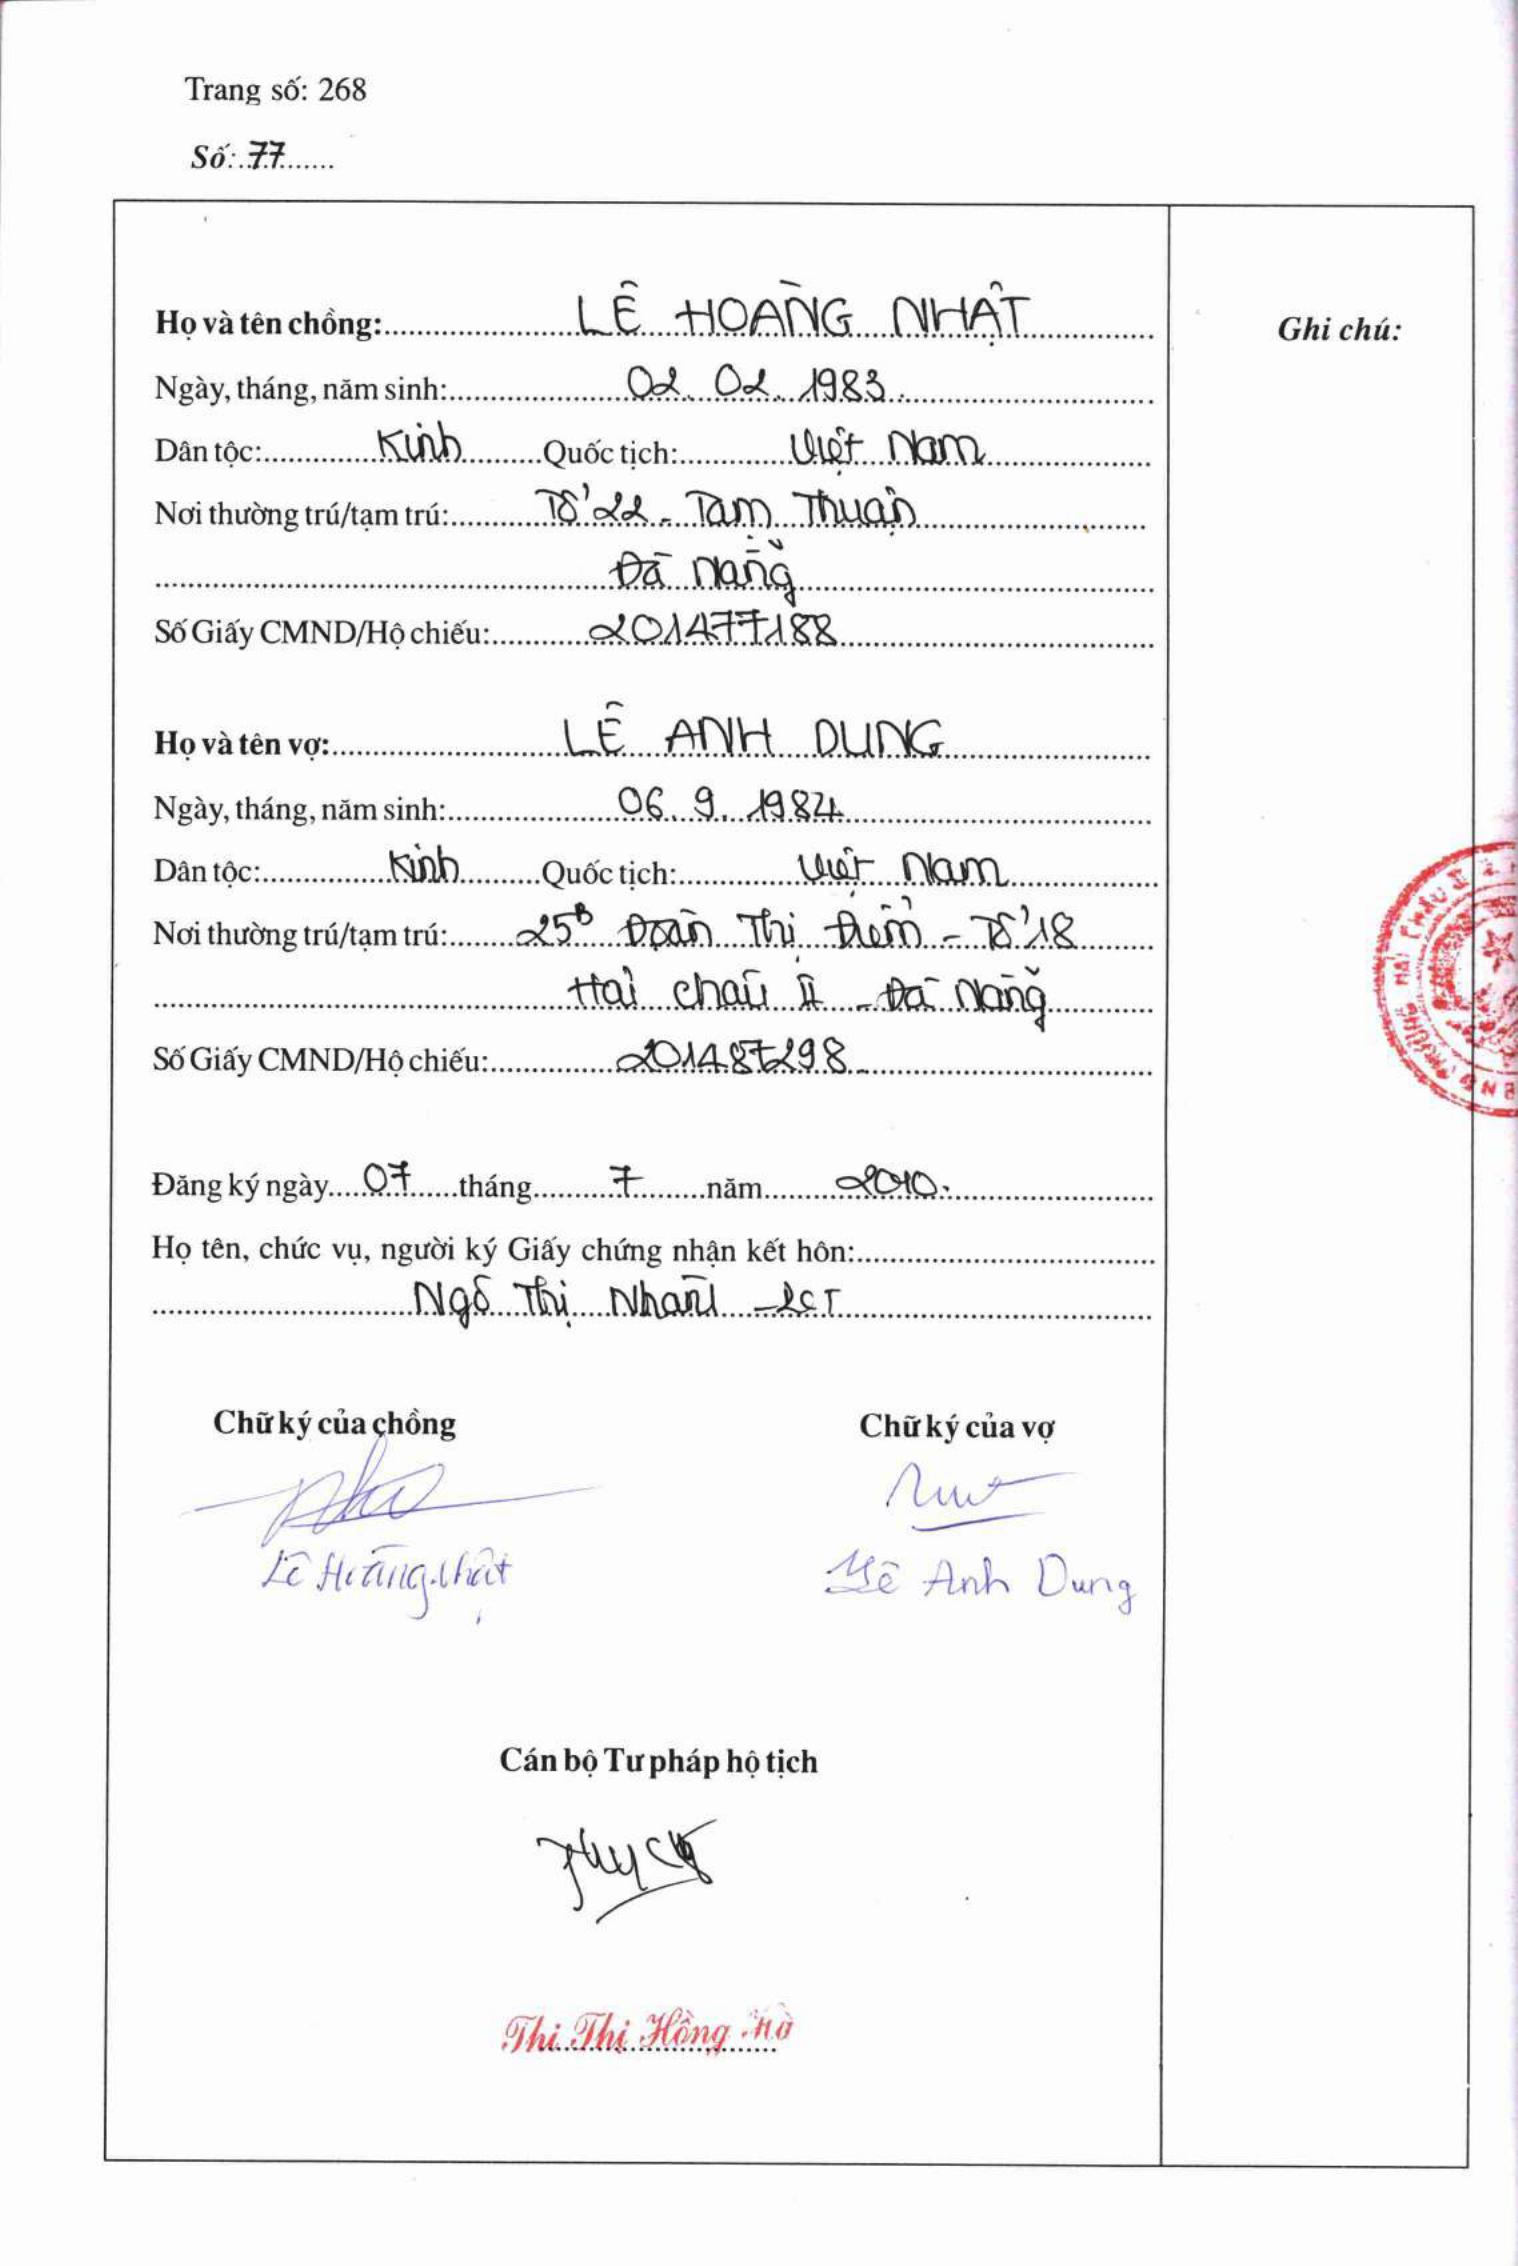 Trang số: 268
Số: 77
Họ và tên chồng: LÊ HOÀNG NHẬT
Ghi chú:
Ngày, tháng, năm sinh: 02. 02. 1983.
Dân tộc: Kinh Quốc tịch: Việt Nam
Nơi thường trú/tạm trú: Tổ 22 - Tam Thuận
Đà Nẵng
Số Giấy CMND/Hộ chiếu: 201477188
Họ và tên vợ: LÊ ANH DUNG
Ngày, tháng, năm sinh: 06. 9. 1984
Dân tộc: Kinh Quốc tịch: Việt Nam
Nơi thường trú/tạm trú: 25B Đoàn Thị Điểm - Tổ 18
Hải Châu II - Đà Nẵng
Số Giấy CMND/Hộ chiếu: 201487298
Đăng ký ngày 07 tháng 7 năm 2010.
Họ tên, chức vụ, người ký Giấy chứng nhận kết hôn:
Ngô Thị Nhàn - PCT
Chữ ký của chồng Chữ ký của vợ
Lê Hoàng Nhật Lê Anh Dung
Cán bộ Tư pháp hộ tịch
Thi Thị Hồng Hà